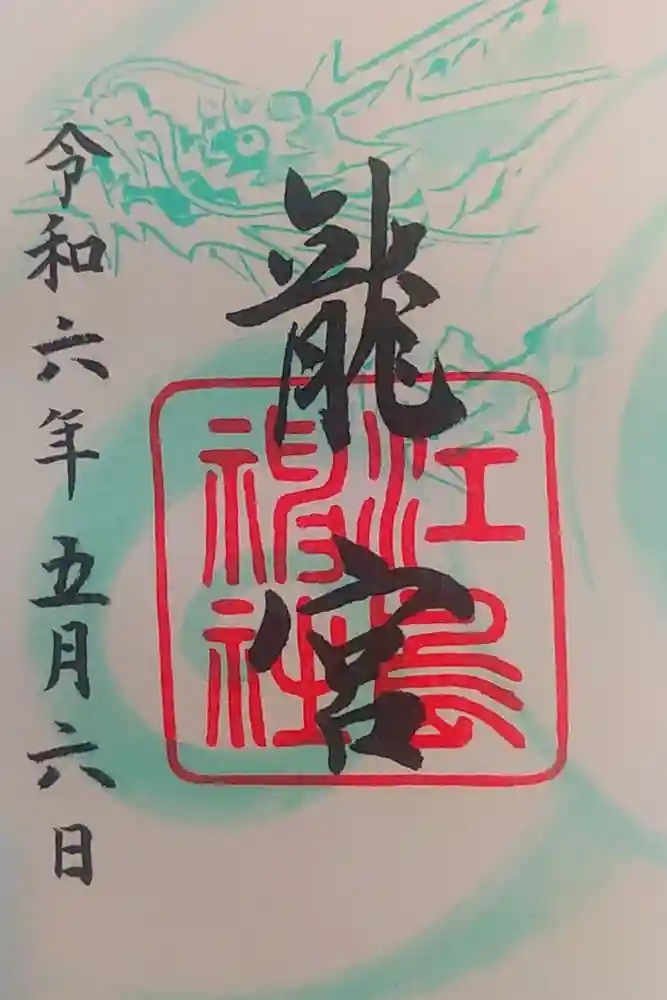 龍宮
江島
神社
令和六年五月六日